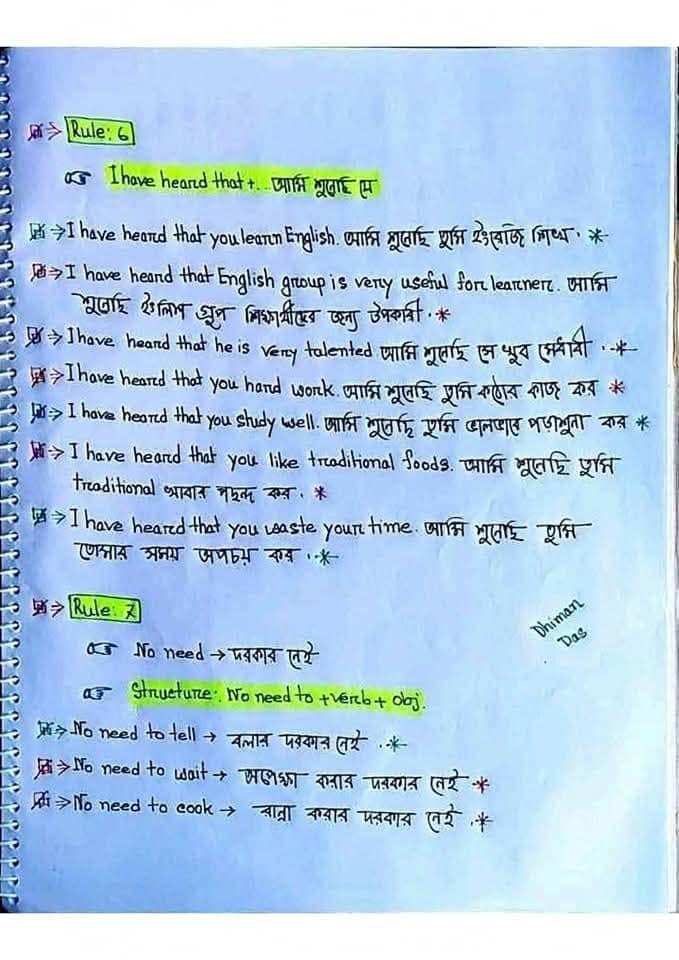 Rule: 6
I have heard that +... আমি শুনেছি যে
I have heard that you learn English. আমি শুনেছি তুমি ইংরেজি শিখ।
I have heard that English group is very useful for learner. আমি
শুনেছি ইংলিশ গ্রুপ শিক্ষার্থীদের জন্য উপকারী।
I have heard that he is very talented. আমি শুনেছি সে খুব মেধাবী।
I have heard that you hard work. আমি শুনেছি তুমি কঠোর কাজ কর
I have heard that you study well. আমি শুনেছি তুমি ভালভাবে পড়াশুনা কর
I have heard that you like traditional foods. আমি শুনেছি তুমি
traditional খাবার পছন্দ কর.
I have heard that you waste your time. আমি শুনেছি তুমি
তোমার সময় অপচয় কর.
Rule: 7
Dhiman
Das
No need → দরকার নেই
Structure: No need to + verb + obj.
No need to tell → বলার দরকার নেই.
No need to wait → অপেক্ষা করার দরকার নেই
No need to cook → রান্না করার দরকার নেই.